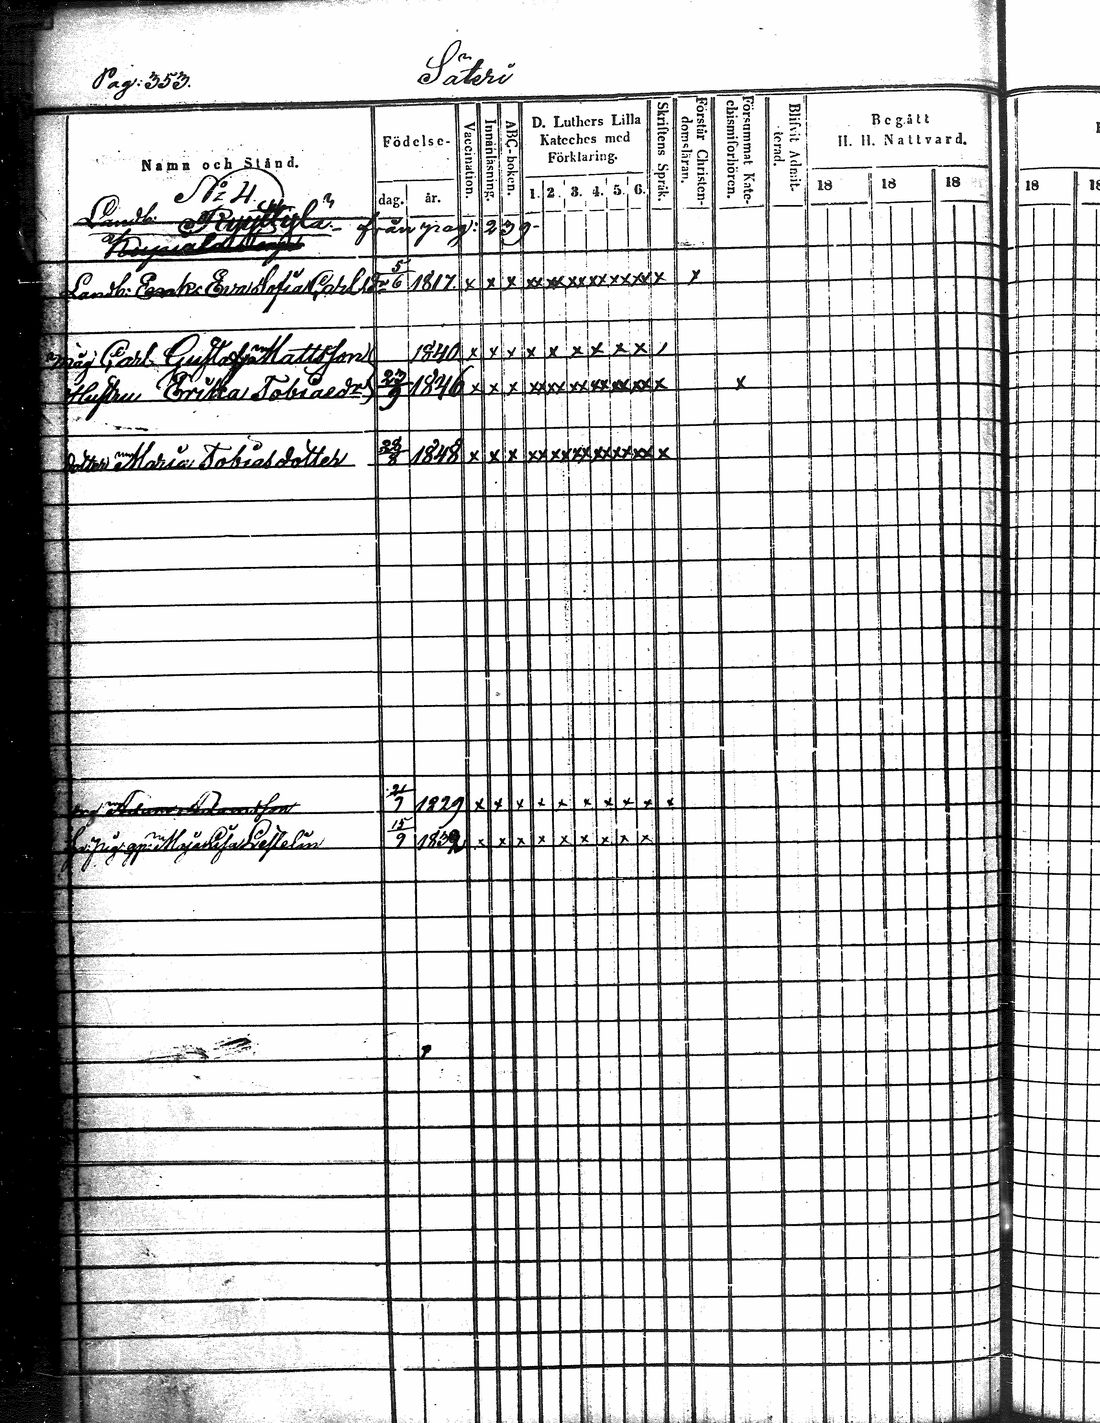 Pag: 353.
Säteri
Namn och Stånd.
Födelse-
dag.
år.
Vaccination.
Innanläsning.
ABC-boken.
D. Luthers Lilla
Kateches med
Förklaring.
1. 2. 3. 4. 5. 6.
Skriftens Språk.
Förstår Christen-
domsläran.
Försummat Kate-
chismiförhören.
Blifvit Admit-
terad.
Begått
H. H. Nattvard.
18 18 18 18 18
No 4.
Landb: från pag: 239-
Landb: Enka Eva Sofia Carlsd:r 5/6 1817 x x x xx xx xx xx xx xx x x
måg Carl Gustaf Mattsson 1840 x x x x x x x x x /
Hustru Erika Tobiaed:r 23/9 1846 x x x xx xx xx xx xx xx x x
dotter Maria Tobiasdotter 28/8 1848 x x x xx xx xx xx xx xx x
Adam Adamsson 21/7 1829 x x x x x x x x x x
Maja Lisa 15/9 1832 x x x x x x x x x